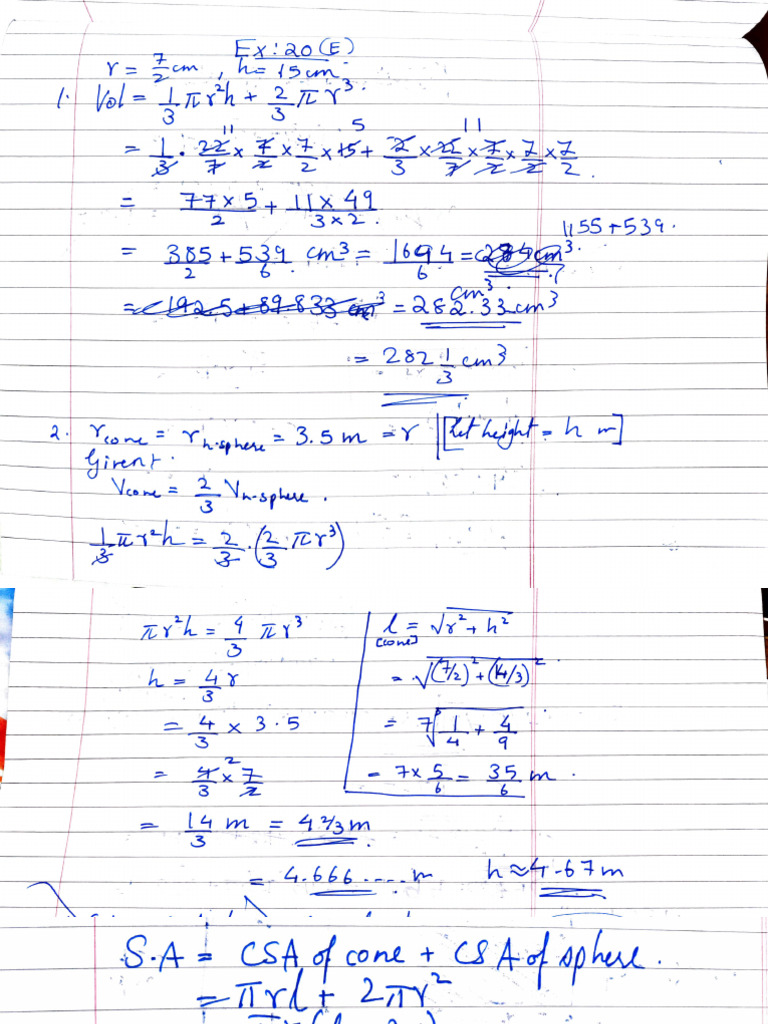 Ex: 20 (E)
r = 7/2 cm , h = 15 cm.
1. Vol = 1/3 πr²h + 2/3 πr³.
= 1/3 · 22/7 × 7/2 × 7/2 × 15 + 2/3 × 22/7 × 7/2 × 7/2 × 7/2 .
11 5 11
= 77×5/2 + 11×49/3×2
1155 + 539.
= 385/2 + 539/6 cm³ = 1694/6 =
cm³.
= 192.5 + 89.833 cm³ = 282.33 cm³
= 282 1/3 cm³
2. r cone = r h.sphere = 3.5 m = r [Let height = h m]
Given:
V cone = 2/3 V h-sphere .
1/3 πr²h = 2/3 · (2/3 πr³)
πr²h = 4/3 πr³
h = 4/3 r
= 4/3 × 3.5
= 4/3 × 7/2
2
= 14/3 m = 4 2/3 m
= 4.666.....m h ≈ 4.67 m
l = √r² + h²
(cone)
= √(7/2)² + (14/3)²
= 7√1/4 + 4/9
= 7 × 5/6 = 35/6 m .
S.A = CSA of cone + CSA of sphere.
= πrl + 2πr²